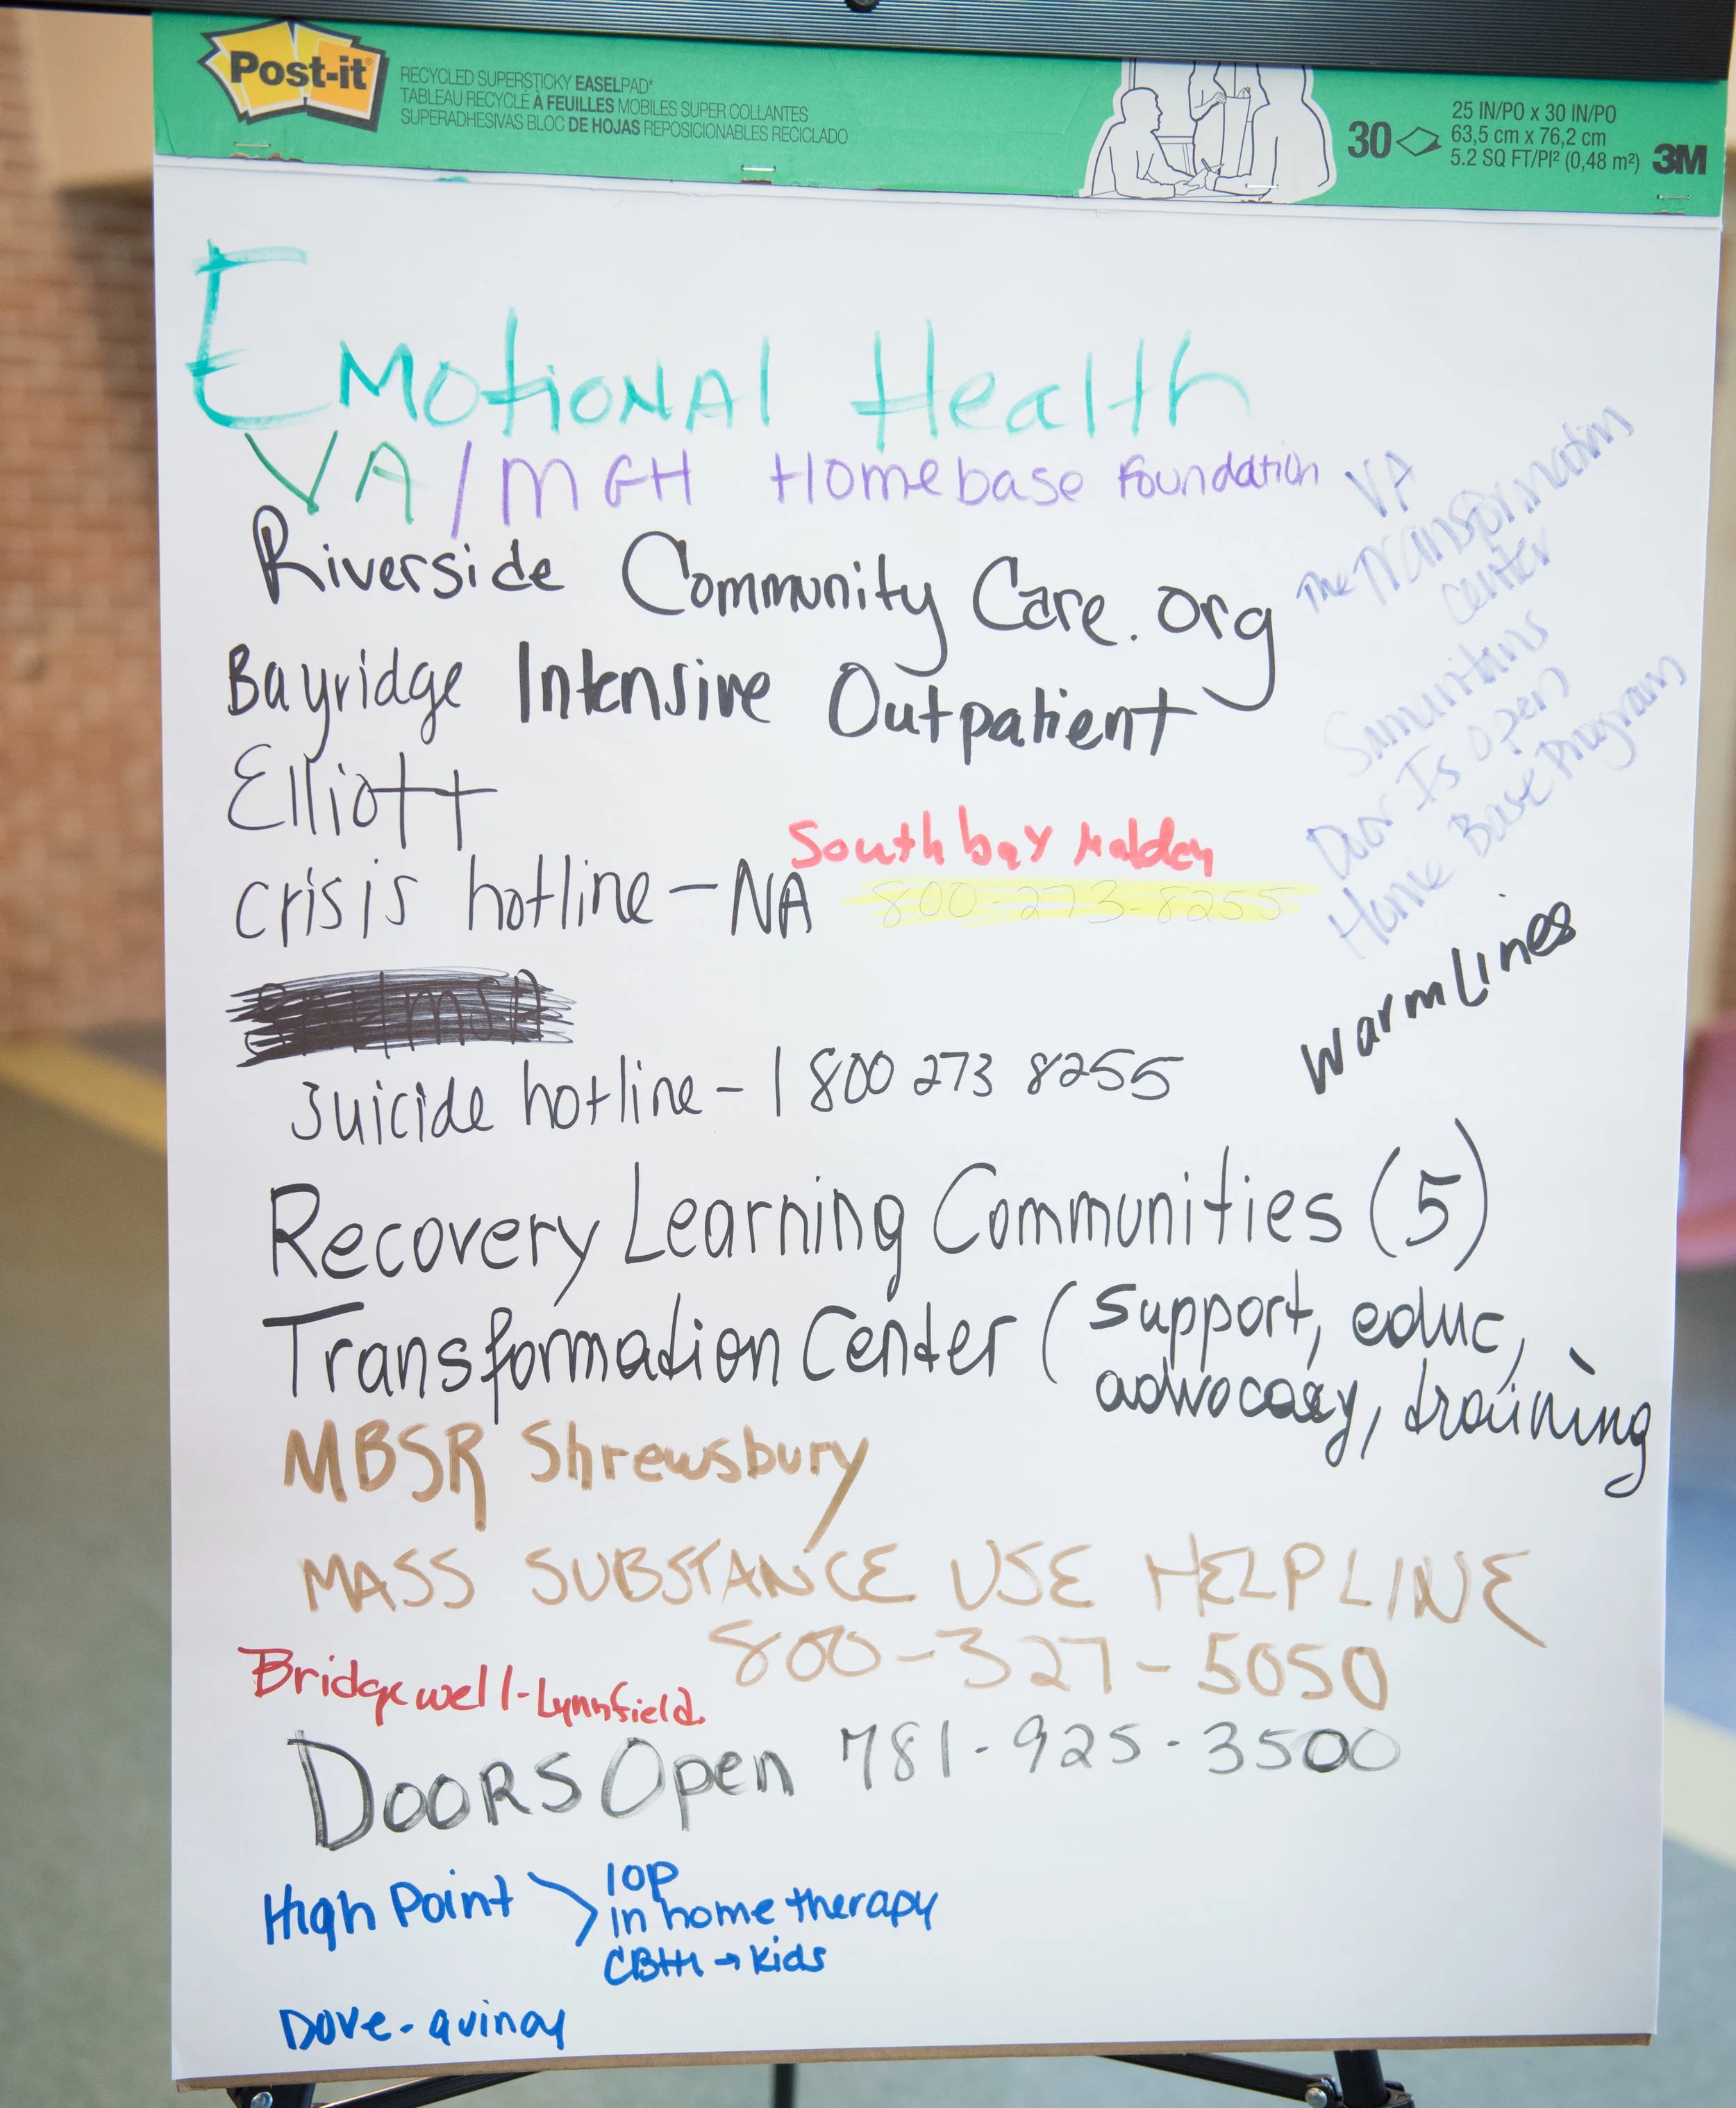 Post-it
RECYCLED SUPERSTICKY EASELPAD*
TABLEAU RECYCLÉ À FEUILLES MOBILES SUPER COLLANTES
SUPERADHESIVAS BLOC DE HOJAS REPOSICIONABLES RECICLADO
30
25 IN/PO x 30 IN/PO
63,5 cm x 76,2 cm
5.2 SQ FT/PI² (0,48 m²)
3M
Emotional Health
VA/MGH Homebase Foundation
Riverside Community Care.org
Bayridge Intensive Outpatient
Elliott
South bay Malden
crisis hotline - NA 800-273-8255
Suicide hotline - 1 800 273 8255
VA
The Transformation
Center
Samaritans
Door Is open
Home Base Program
Warm Lines
Recovery Learning Communities (5)
Transformation Center (support, educ,
advocacy, training
MBSR Shrewsbury
MASS SUBSTANCE USE HELPLINE
800-327-5050
Bridgewell-Lynnfield.
DOORS Open 781-925-3500
High Point > IOP
in home therapy
CBHI → Kids
Dove -